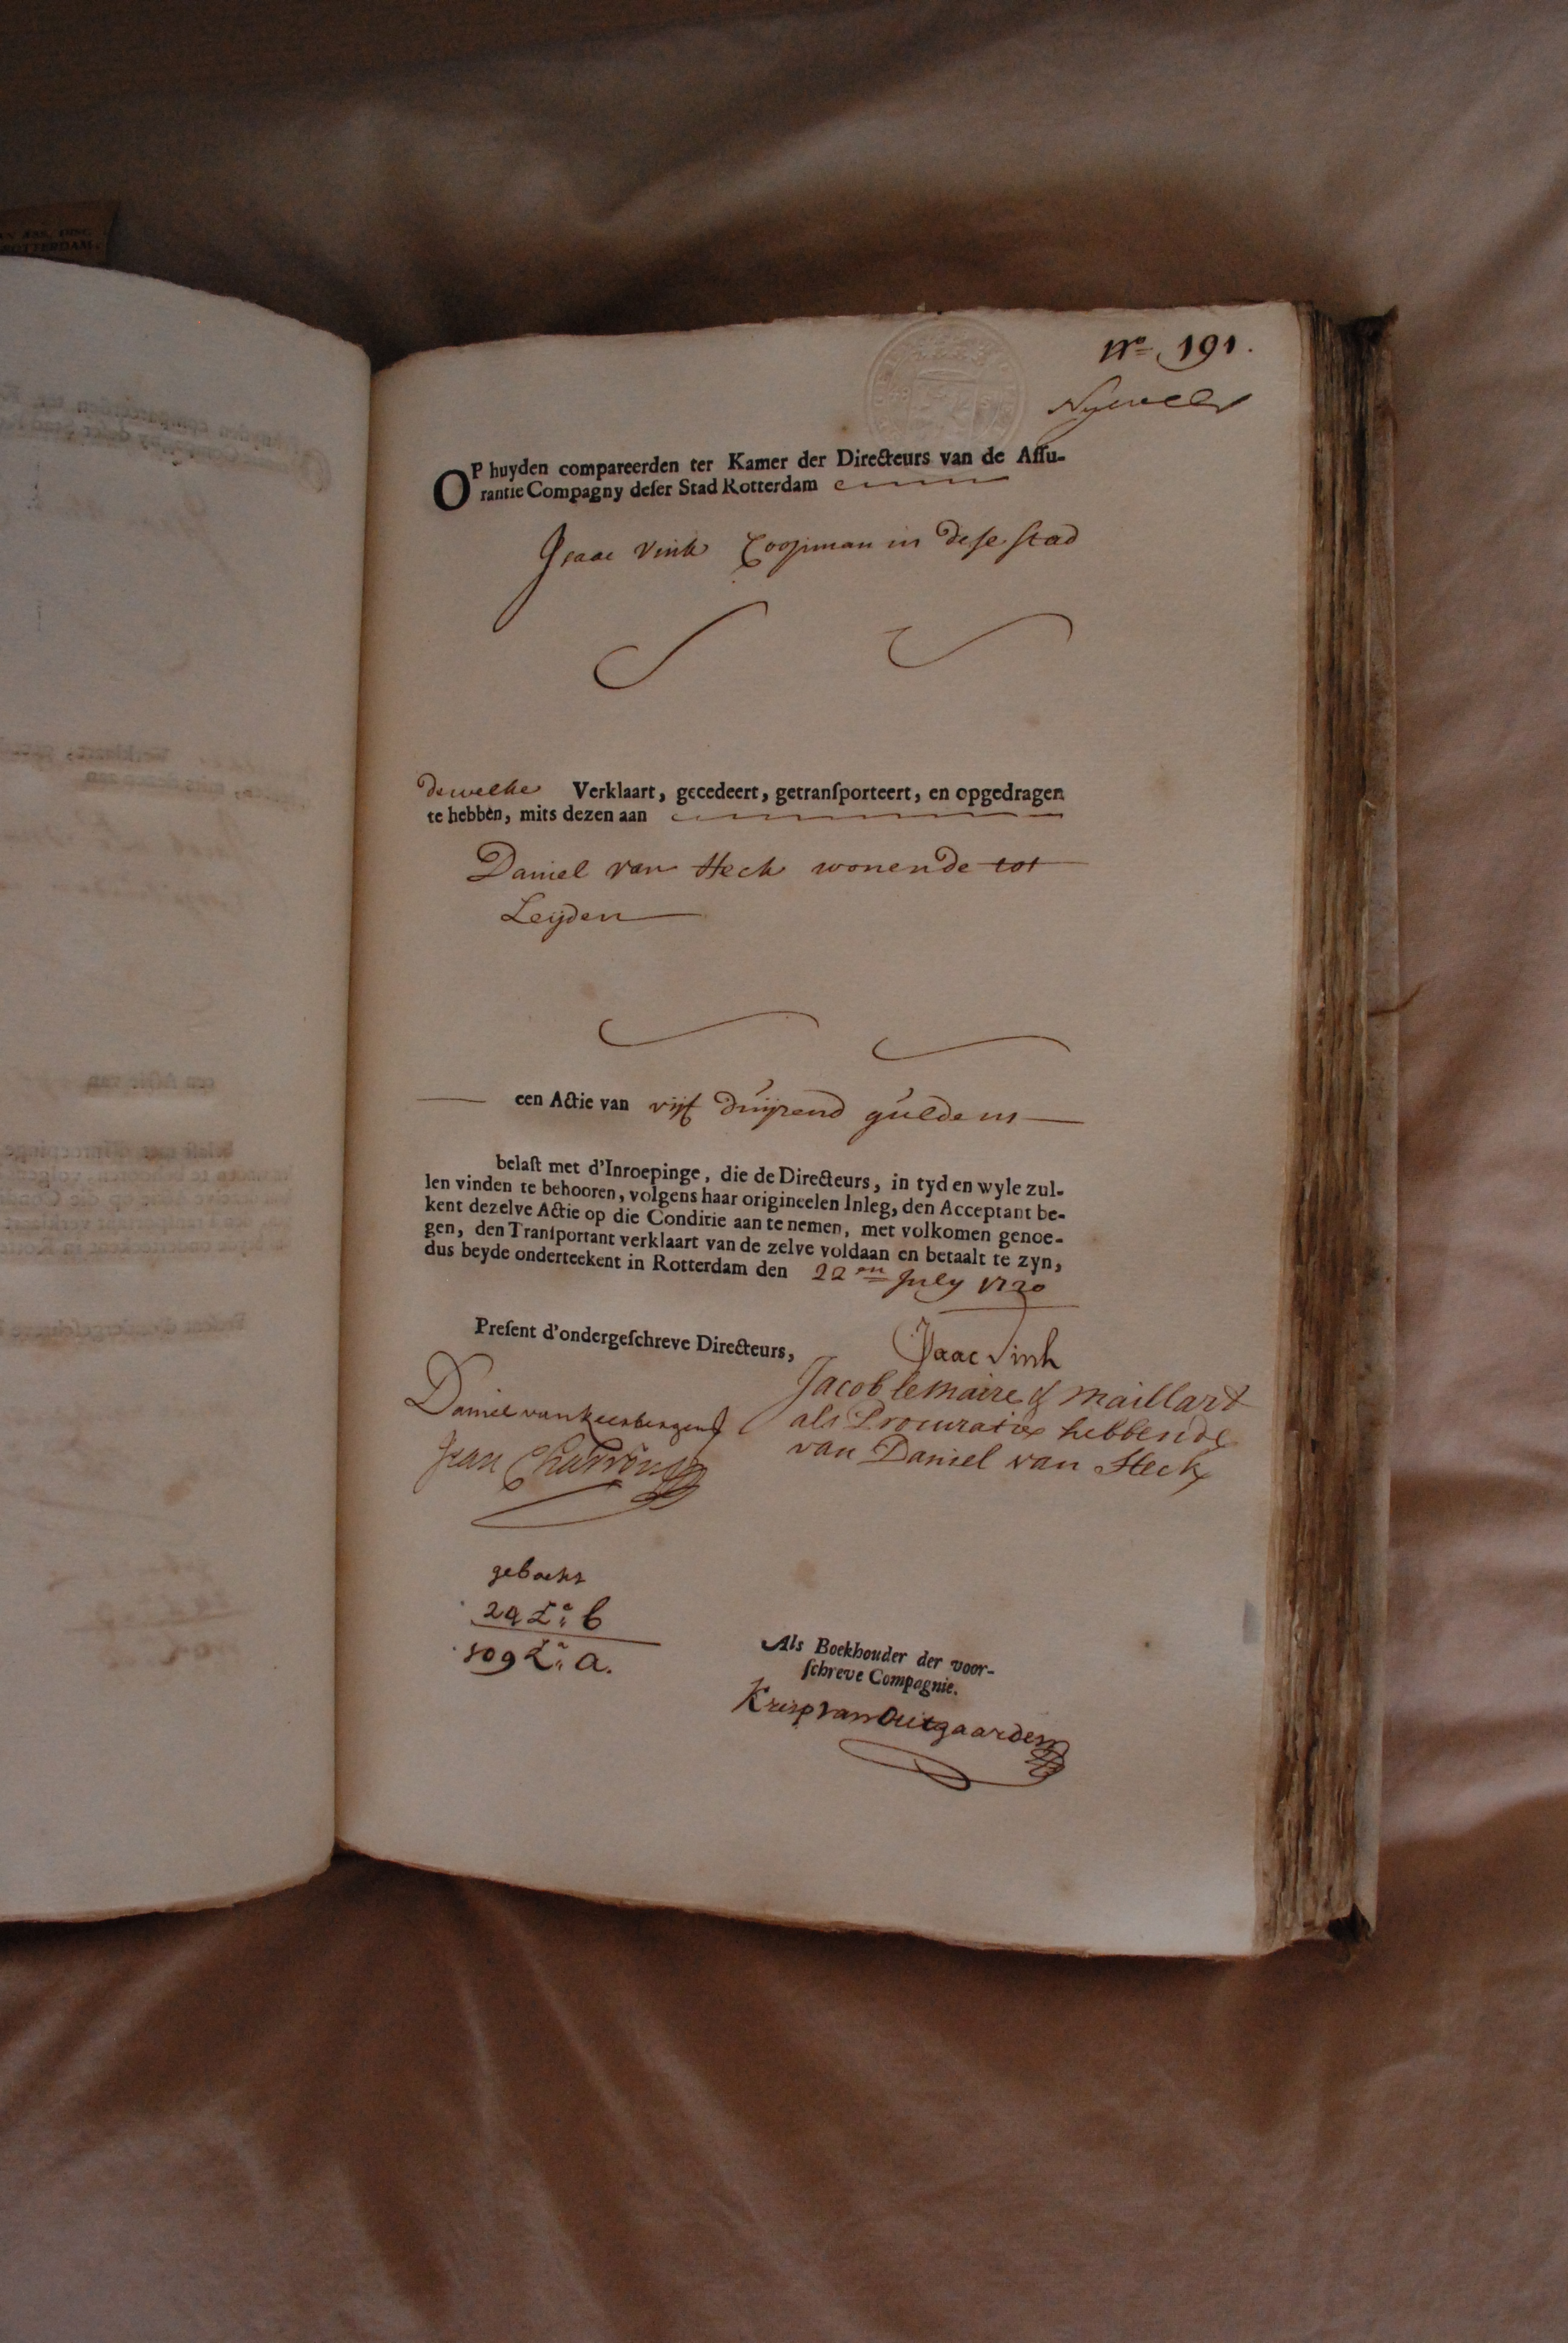 N.º 191.
OP huyden compareerden ter Kamer der Directeurs van de Aſſu-
rantie Compagny deſer Stad Rotterdam
Isaac Vink Coopman in deſe ſtad
dewelke Verklaart, gecedeert, getranſporteert, en opgedragen
te hebben, mits dezen aan
Daniel van Heck wonende tot
Leyden
een Actie van vijf duijzend guldens
belaſt met d'Inroepinge, die de Directeurs, in tyd en wyle zul-
len vinden te behooren, volgens haar origineelen Inleg, den Acceptant be-
kent dezelve Actie op die Conditie aan te nemen, met volkomen genoe-
gen, den Tranſportant verklaart van de zelve voldaan en betaalt te zyn,
dus beyde onderteekent in Rotterdam den 22en July 1720
Preſent d'ondergeſchreve Directeurs,
Isaac Vink
Jacob le Maire & Maillart
als Procuratie hebbende
van Daniel van Heck
Daniel van Keerbergen
Jean
geboekt
29 L.a b
109 L.a a.
Als Boekhouder der voor-
ſchreve Compagnie.
Krisp van Outgaarden
ROTTERDAM.